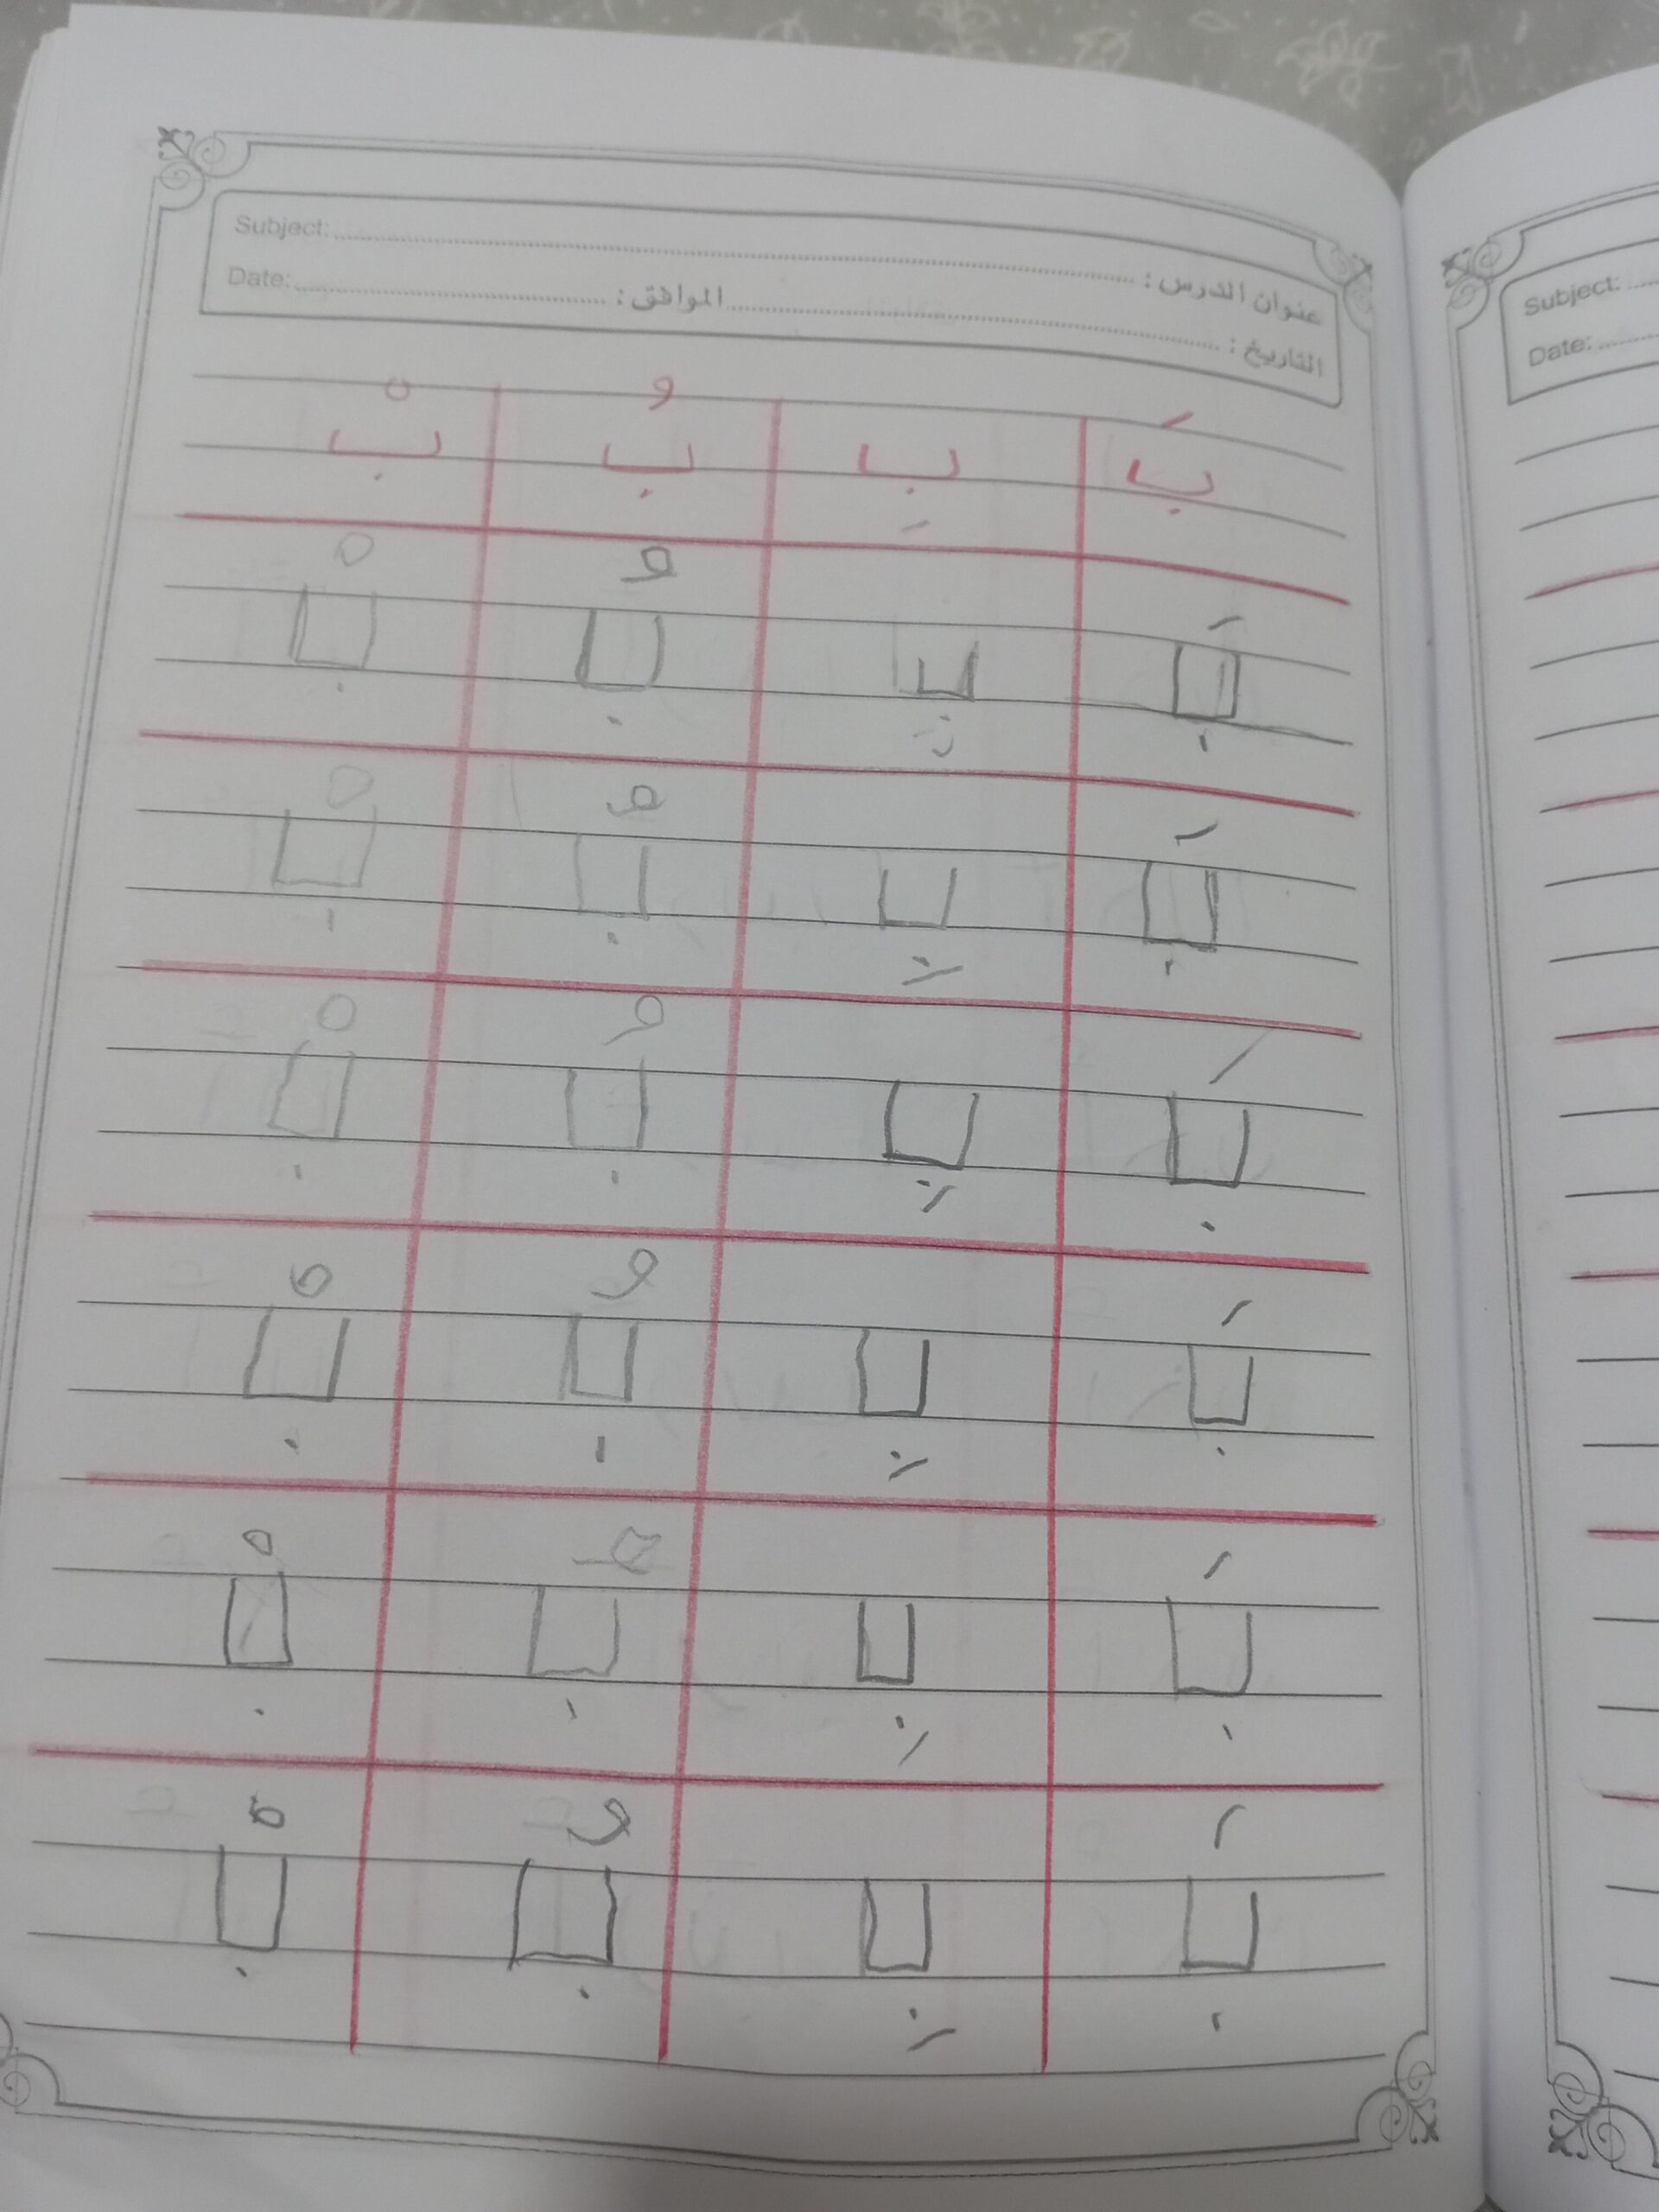 Subject: عنوان الدرس :
Date: الموافق : التاريخ :
بَ بِ بُ بْ
بَ بِ بُ بْ
بَ بِ بُ بْ
بَ بِ بُ بْ
بَ بِ بُ بْ
بَ بِ بُ بْ
بَ بِ بُ بْ
Subject:
Date: